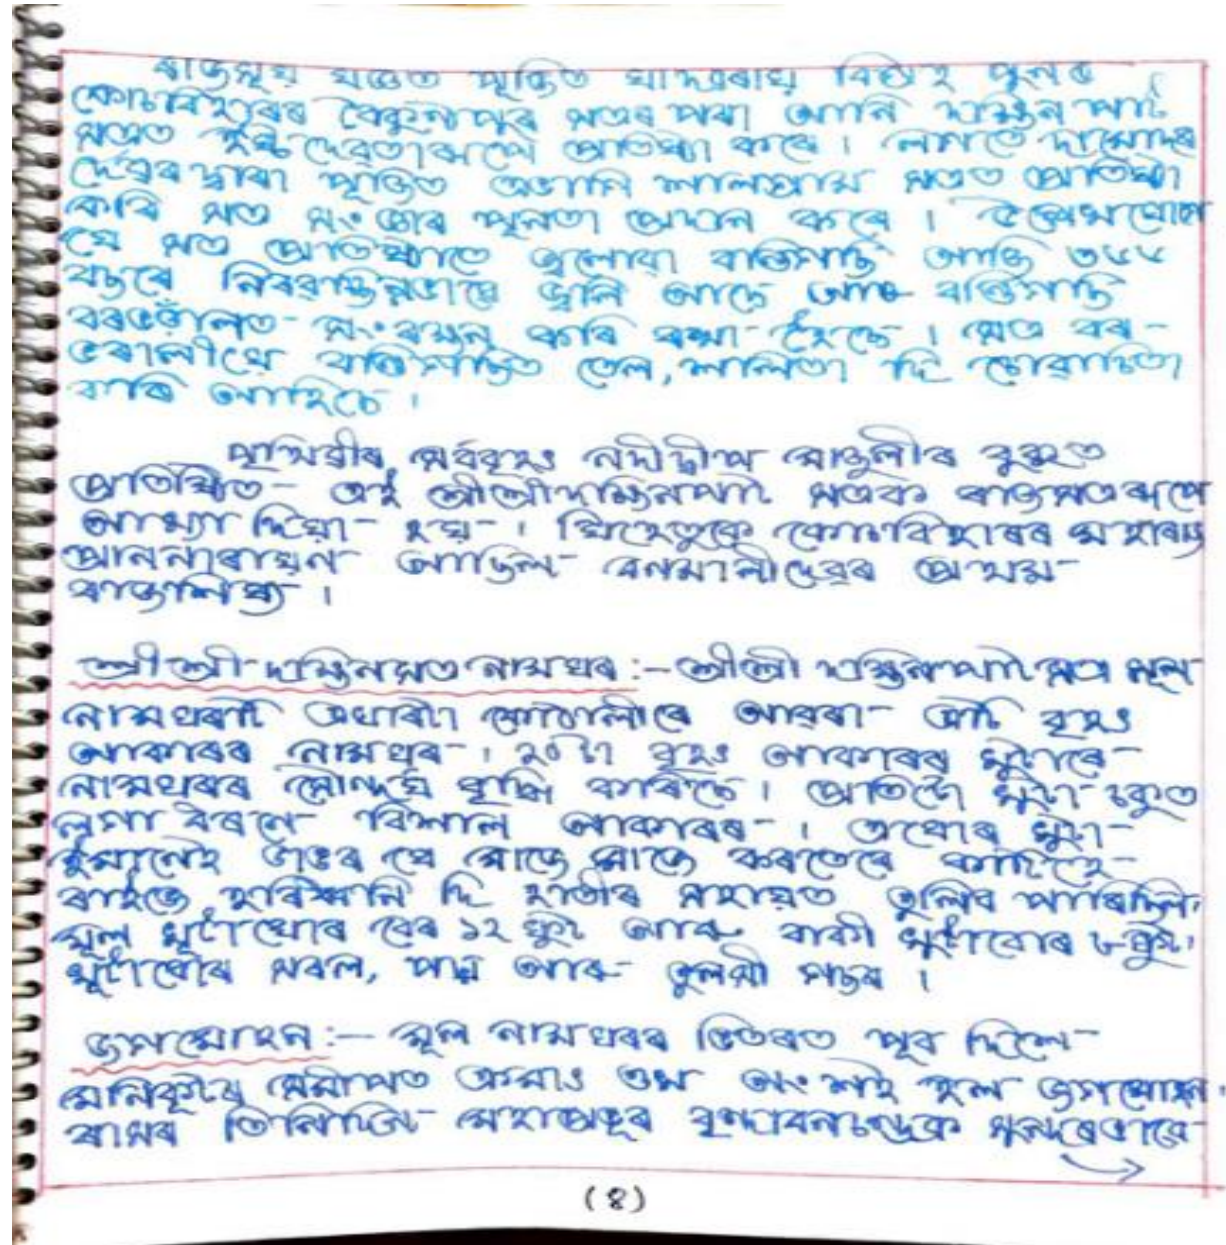 ৰাজসূয় যজ্ঞত পূজিত যাদৱৰায় বিগ্ৰহ পুনৰ
কোচবিহাৰৰ বৈকুণ্ঠপুৰ সত্ৰৰ পৰা আনি দক্ষিন পাট
সত্ৰত ইষ্টদেৱতাৰূপে প্ৰতিষ্ঠা কৰে। লগতে দামোদৰ
দেৱৰ দ্বাৰা পূজিত এভাগি শালগ্ৰাম সত্ৰত প্ৰতিষ্ঠা
কৰি সত্ৰ সংস্কাৰ পূৰ্নতা প্ৰদান কৰে। উল্লেখযোগ্য
যে সত্ৰ প্ৰতিষ্ঠাতে জ্বলোৱা বন্তিগচি আজি ৩৬৬
বছৰে নিৰৱচ্ছিন্নভাৱে জ্বলি আছে আৰু বন্তিগচি
বৰভঁৰালত সংৰক্ষন কৰি ৰখা হৈছে। সত্ৰ বৰ-
ভৰালীয়ে বন্তিগচিত তেল, শলিতা দি চোৱাচিতা
কৰি আহিছে।
পৃথিৱীৰ সৰ্ববৃহৎ নদীদ্বীপ মাজুলীৰ বুকুত
প্ৰতিষ্ঠিত এই শ্ৰীশ্ৰীদক্ষিনপাট সত্ৰক ৰাজসত্ৰৰূপে
আখ্যা দিয়া হয়। যিহেতুকে কোচবিহাৰৰ মহাৰাজ
প্ৰাননাৰায়ন আছিল বনমালীদেৱৰ প্ৰথম
ৰাজশিষ্য।
শ্ৰী শ্ৰী দক্ষিনসত্ৰ নামঘৰ :- শ্ৰীশ্ৰী দক্ষিনপাট সত্ৰ মূল
নামঘৰটি এঘাৰটা কোঠালীৰে আৱৰা এটি বৃহৎ
আকাৰৰ নামঘৰ। ২০টা বৃহৎ আকাৰৰ খুটাৰে
নামঘৰৰ সৌন্দৰ্য বৃদ্ধি কৰিছে। প্ৰতিটো খুটা চকুত
লগা ধৰণে বিশাল আকাৰৰ। এথোৰ খুটা
ইমানেই ডাঙৰ যে মাজে মাজে কৰতেৰে কাটিহে
ৰাইজে হৰিধ্বনি দি হাতীৰ সহায়ত তুলিব পাৰিছিল।
মূল খুটাযোৰ বেৰ ১২ ফুট আৰু বাকী খুটাবোৰ ৮ ফুট।
খুটাবোৰ সৰল, পমা আৰু তুলসী গছৰ।
জগমোহন :- মূল নামঘৰৰ ভিতৰত পূব দিশে
মনিকূটৰ সমীপত এখন অংশই হ'ল জগমোহন।
ৰাসৰ তিনিদিন মহাপ্ৰভূৰ বৃন্দাবনচন্দ্ৰক সুন্দৰভাৱে
(৪)